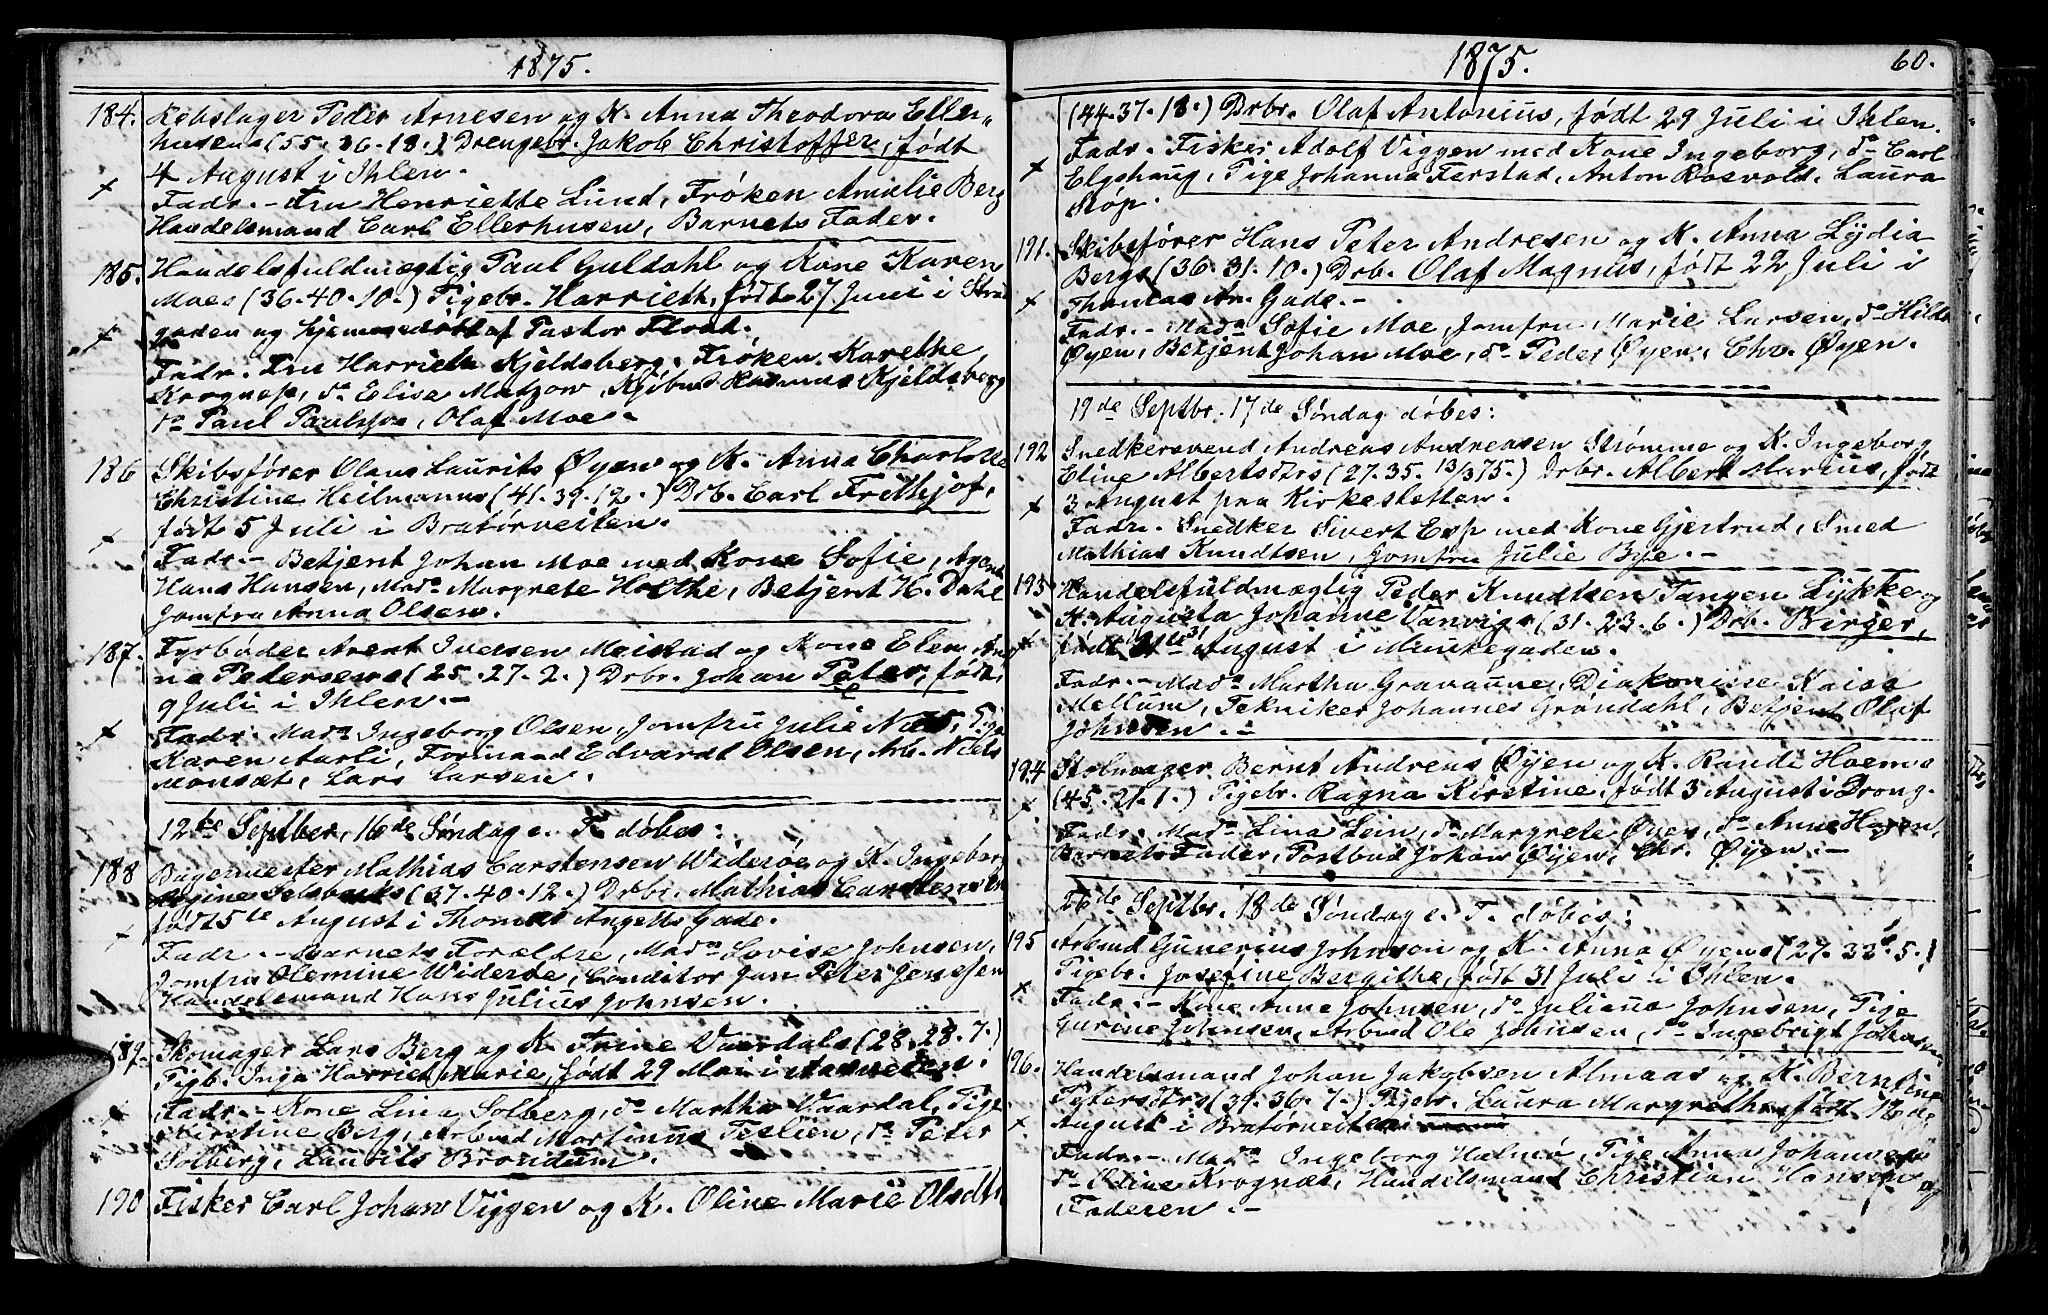 1875.
184. Rebslager Peder Arnesen og K. Anna Theodora Eller-
husens (55. 36. 18.) Drengebr. Jakob Christoffer, født
4 August i Ihlen.
+ Fadr. - Fru Henriette Lund, Frøken Amalie Berg
Handelsmand Carl Ellerhusen, Barnets Fader.
185. Handelsfuldmægtig Paul Guldahl og Kone Karen
Moes (36. 40. 10.) Pigebr. Harrieth, født 27 Juni i Strand
gaden og hjemmedøbt af Pastor Flood.
+ Fadr. Fru Harrieth Kjeldsberg, Frøken Karethe
Krogness, do Elise Matzow, Kjøbmd Rasmus Kjeldsberg
do Paul Paulssøn, Olaf Moe.
186 Skibsfører Olaus Laurits Øyen og K. Anna Charlotte
Christine Heilmanns (41. 39. 12.) Drb. Carl Frithjof,
født 5 Juli i Bratørveiten.
+ Fadr. - Betjent Johan Moe med Kone Sofie, Agent
Hans Hansen, Mada Margrete Holthe, Betjent H. Dahl
Jomfru Anna Olsen.
187. Fyrbøder Arent Iversen Meistad og Kone Elen An
na Pedersens (25. 27. 2.) Drbr. Johan Peter, født
9 Juli i Ihlen. -
+ Fadr. Mada Ingeborg Olsen, Jomfru Julie Næs, Pige
Karen Aarli, Formand Edvardt Olsen, Arb. Niels
Monsæt, Lars Larsen.
12te Septber, 16de Søndag e. T. døbes:
188 Bagermester Mathias Carstensen Widerøe og K. Ingeborg
Regine Selsbaks (37. 40. 12.) Drbr. Mathias Carsten
født 5te August i Thomas Angells Gade.
+ Fadr. - Barnets Forældre, Mada Lovise Johnsen,
Jomfru Olemine Widerøe, Conditor Jan Peter Jenssen
Handelsmand Hans Julius Johnsen.
189. Skomager Lars Berg og K. Trine Vaardals (28. 28. 7.)
Pigb. Inga Harriet Marie, født 29 Mai i
+ Fadr. - Kone Lina Solberg, do Martha Vaardal, Pige
Kirstine Berg, Arbmd Martinus Teslien, do Peter
Solberg, Laurits Brondum.
190 Fisker Carl Johan Viggen og K. Oline Marie Olsdtr
1875. 60.
(44. 37. 18.) Drbr. Olaf Antonius, født 29 Juli i Ihlen.
+ Fadr. Fisker Adolf Viggen med Kone Ingeborg, do Carl
Elgshaug, Pige Johanna Ferstad, Anton Rosvold, Laura
Støp.
191. Skibsfører Hans Peter Andresen og K. Anna Lydia
Bergs (36. 31. 10.) Drb. Olaf Magnus, født 22 Juli i
+ Thomas An. Gade. -
Fadr. - Mada Sofie Moe, Jomfru Marie Larsen, do Hilda
Øyen, Betjent Johan Moe, do Peder Øyen, Chr. Øyen.
19de Septbr. 17de Søndag døbes:
192 Snedkersvend Andreas Andreasen Strømme og K. Ingeborg
Eline Albertsdtrs (27. 35. 13/3 75.) Drbr. Albert Marius, født
+ 3 August paa Kirkesletten.
Fadr. Snedker Sivert Esp med Kone Gjertrud, Smed
Mathias Knudtsen, Jomfru Julie Bye. -
193 Handelsfuldmægtig Peder Knudtsen Tangen Lykke og
K. Augusta Johanne Vanvigs (31. 23. 6.) Drb. Birger,
+ født 31 August i Munkegaden.
Fadr. - Mada Martha Gravaune, Diakonisse Kaisa
Mellum, Tekniker Johannes Grøndahl, Betjent Olaf
Johnsen. -
194 Stolmager Bernt Andreas Øyen og K. Randi Hoems
+ (45. 21. 1.) Pigebr. Ragna Kirstine, født 3 August i Drong.
Fadr. Mada Lina Lein, do Margrete Øyen, do Anne Hagen,
Barnets Fader, Postbud Johan Øyen, Chr. Øyen. -
26de Septbr. 18de Søndag e. T. døbes:
195 Arbmd Gunerius Johnsen og K. Anna Øyens (27. 33. 5.)
Pigebr. Josefine Bergithe, født 31 Juli i Ihlen.
+ Fadr. - Kone Anne Johnsen, do Juliana Johnsen, Pige
Gurine Johnsen, Arbmd Ole Johnsen, do Ingebrigt Johnsen
196. Handelsmand Johan Jakobsen Almaas og K. Berntine
Petersdtrs (39. 36. 7.) Pigebr. Laura Margrethe, født
+ August i Bratørveiten
Fadr. - Mada Ingeborg Halmø, Pige Anna Johansen
do Odine Krognæs, Handelsmand Christian Hansen og
Faderen. -